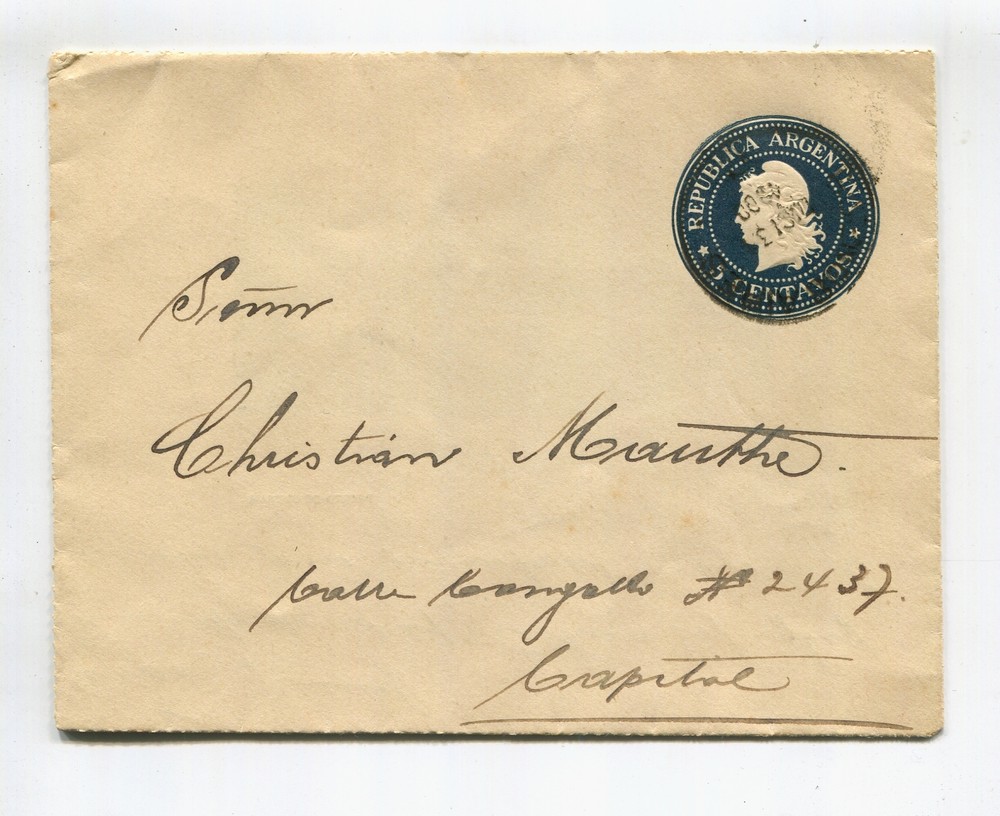 REPUBLICA ARGENTINA
5 CENTAVOS
Señor
Christian Mauthe.
Calle Cangallo № 2437.
Capital